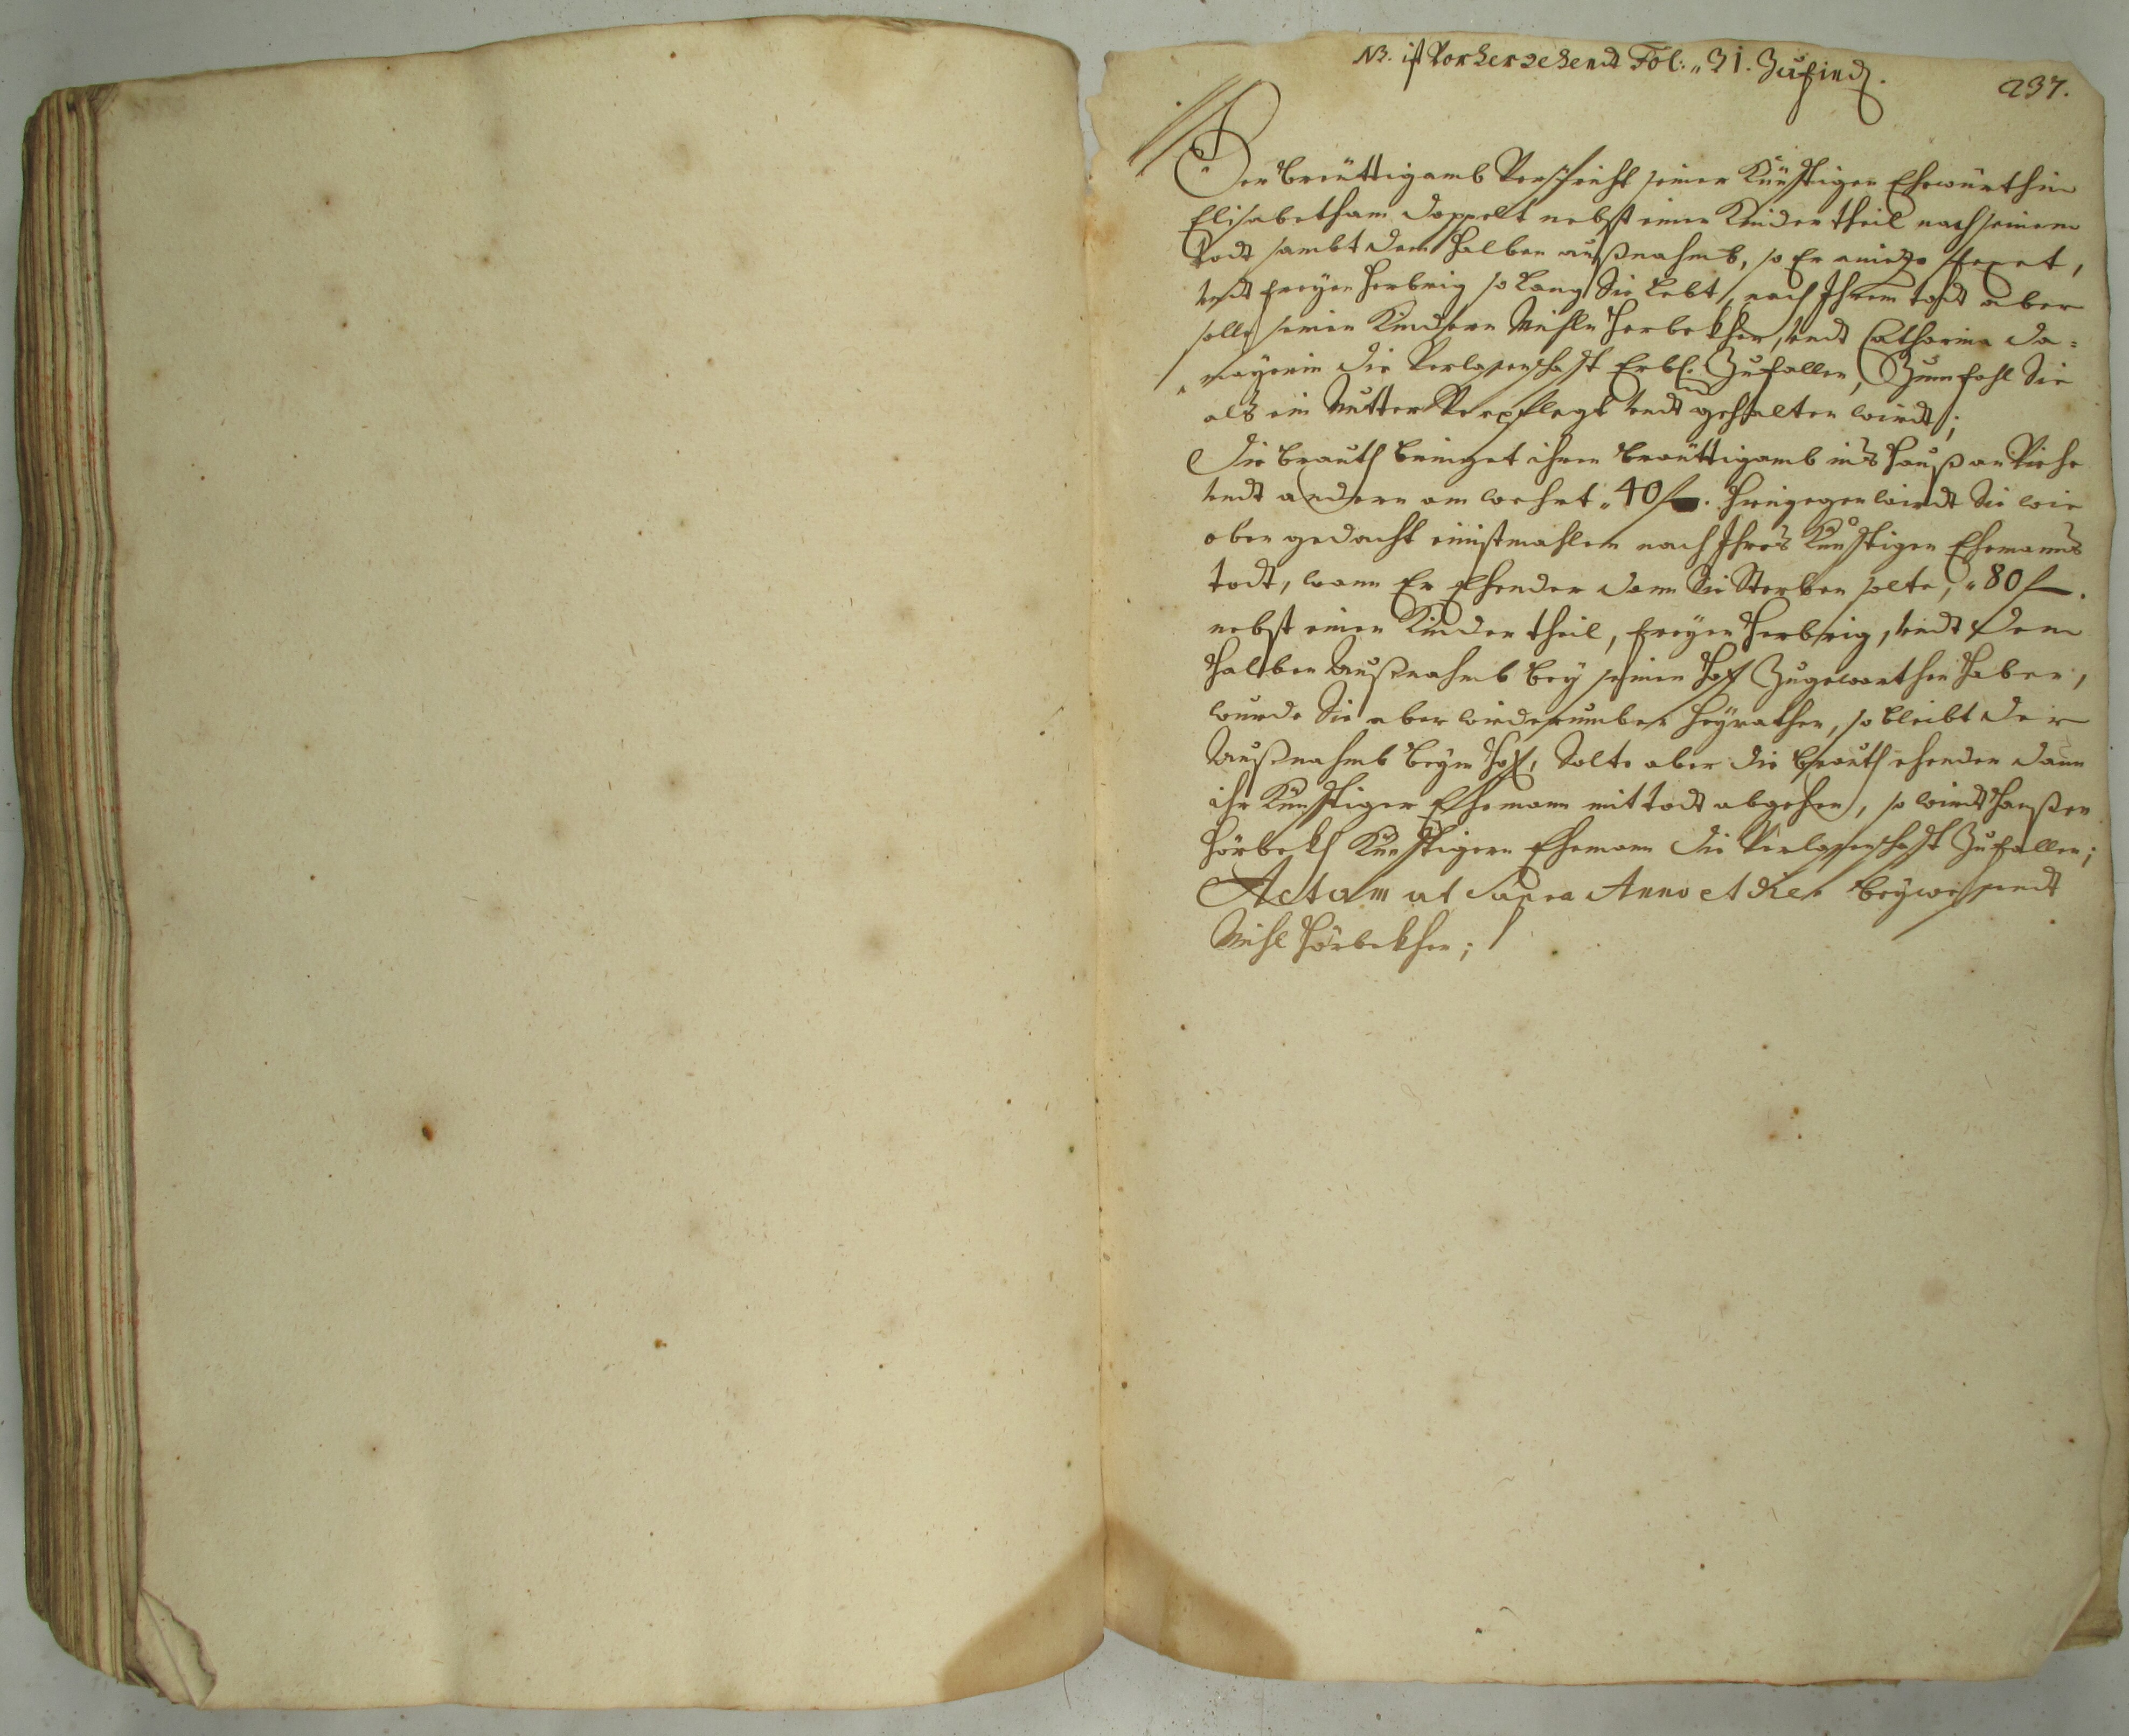 NB. ist Vorhergehendt Fol: „ 31. Zufind.
237.
Der breüttigamb Verspricht seiner Künfftigen Ehewürthin
Elisabetham doppelt nebst einen Kinder theil nach seinem
todt sambt dem halben außnahmb, so Er aniezo
undt freyen herbrig so Lang Sie Lebt, nach Ihrem todt aber
solle seinen Kindern Michln Herbekher, undt Catharina Da=
mayerin die Verlasenschafft Erbl: Zufallen, Zumfahl Sie
als ein Mutter Verpflegt undt gehalten wirdt;
Die brauth bringet ihren breüttigamb in's hauß an Viehe
undt andern am wehrt „ 40 f. hingegen wirdt Sie wie
oben gedacht einistmahlen nach Ihres Künfftigen Ehemanns
todt, wann Er Ehender dann Sie Sterben solte, „ 80 f.
nebst einen Kinder theil, freyen herbrig, undt dem
halben Außnahmb bey seinen hoff Zugewarthen haben,
wurde Sie aber widerumben heyrathen, so bleibt der
Außnahmb beym hoff, Solte aber die brauth ehender dann
ihr Künfftiger Ehemann mit todt abgehen, so wirdt Hanßen
Hörbekh Künfftigern Ehemann die Verlasenschafft Zufallen;
Actum ut Supra Anno et die. beywesendt
Michl Hörbekher;